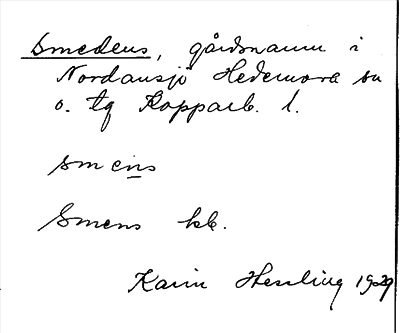 Smedens, gårdsnamn i
Nordansjö Hedemora sn
o. tg Kopparb. l.
smens
Smens kb.
Karin Hessling 1929